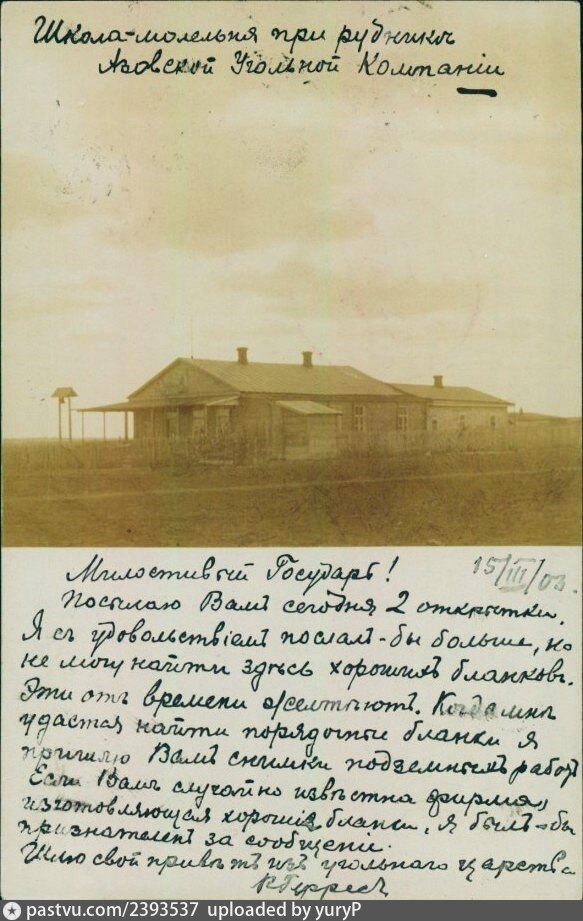 Школа-молельня при рудникѣ
Азовской Угольной Компаніи
Милостивый Государь!
15/III/03.
Посылаю Вамъ сегодня 2 открытки.
Я съ удовольствіемъ послалъ-бы больше, но
не могу найти здѣсь хорошихъ бланковъ.
Эти отъ времени желтѣютъ. Когда мнѣ
удастся найти порядочные бланки я
пришлю Вамъ снимки подземныхъ работъ
Если Вамъ случайно извѣстна фирма,
изготовляющая хорошія бланки, я былъ-бы
признателенъ за сообщеніе.
Шлю свой привѣтъ изъ угольнаго царства
pastvu.com/2393537 uploaded by yuryP